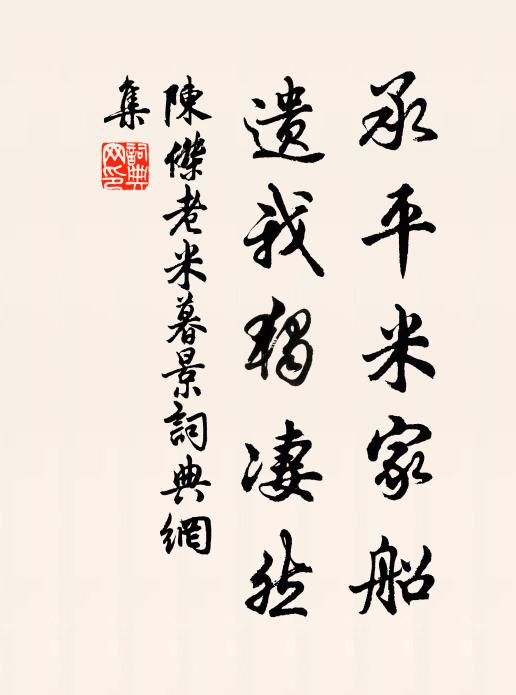 承平米家船
遗我獨凄然
陳傑老米暮景詞典網
集
詞典網印